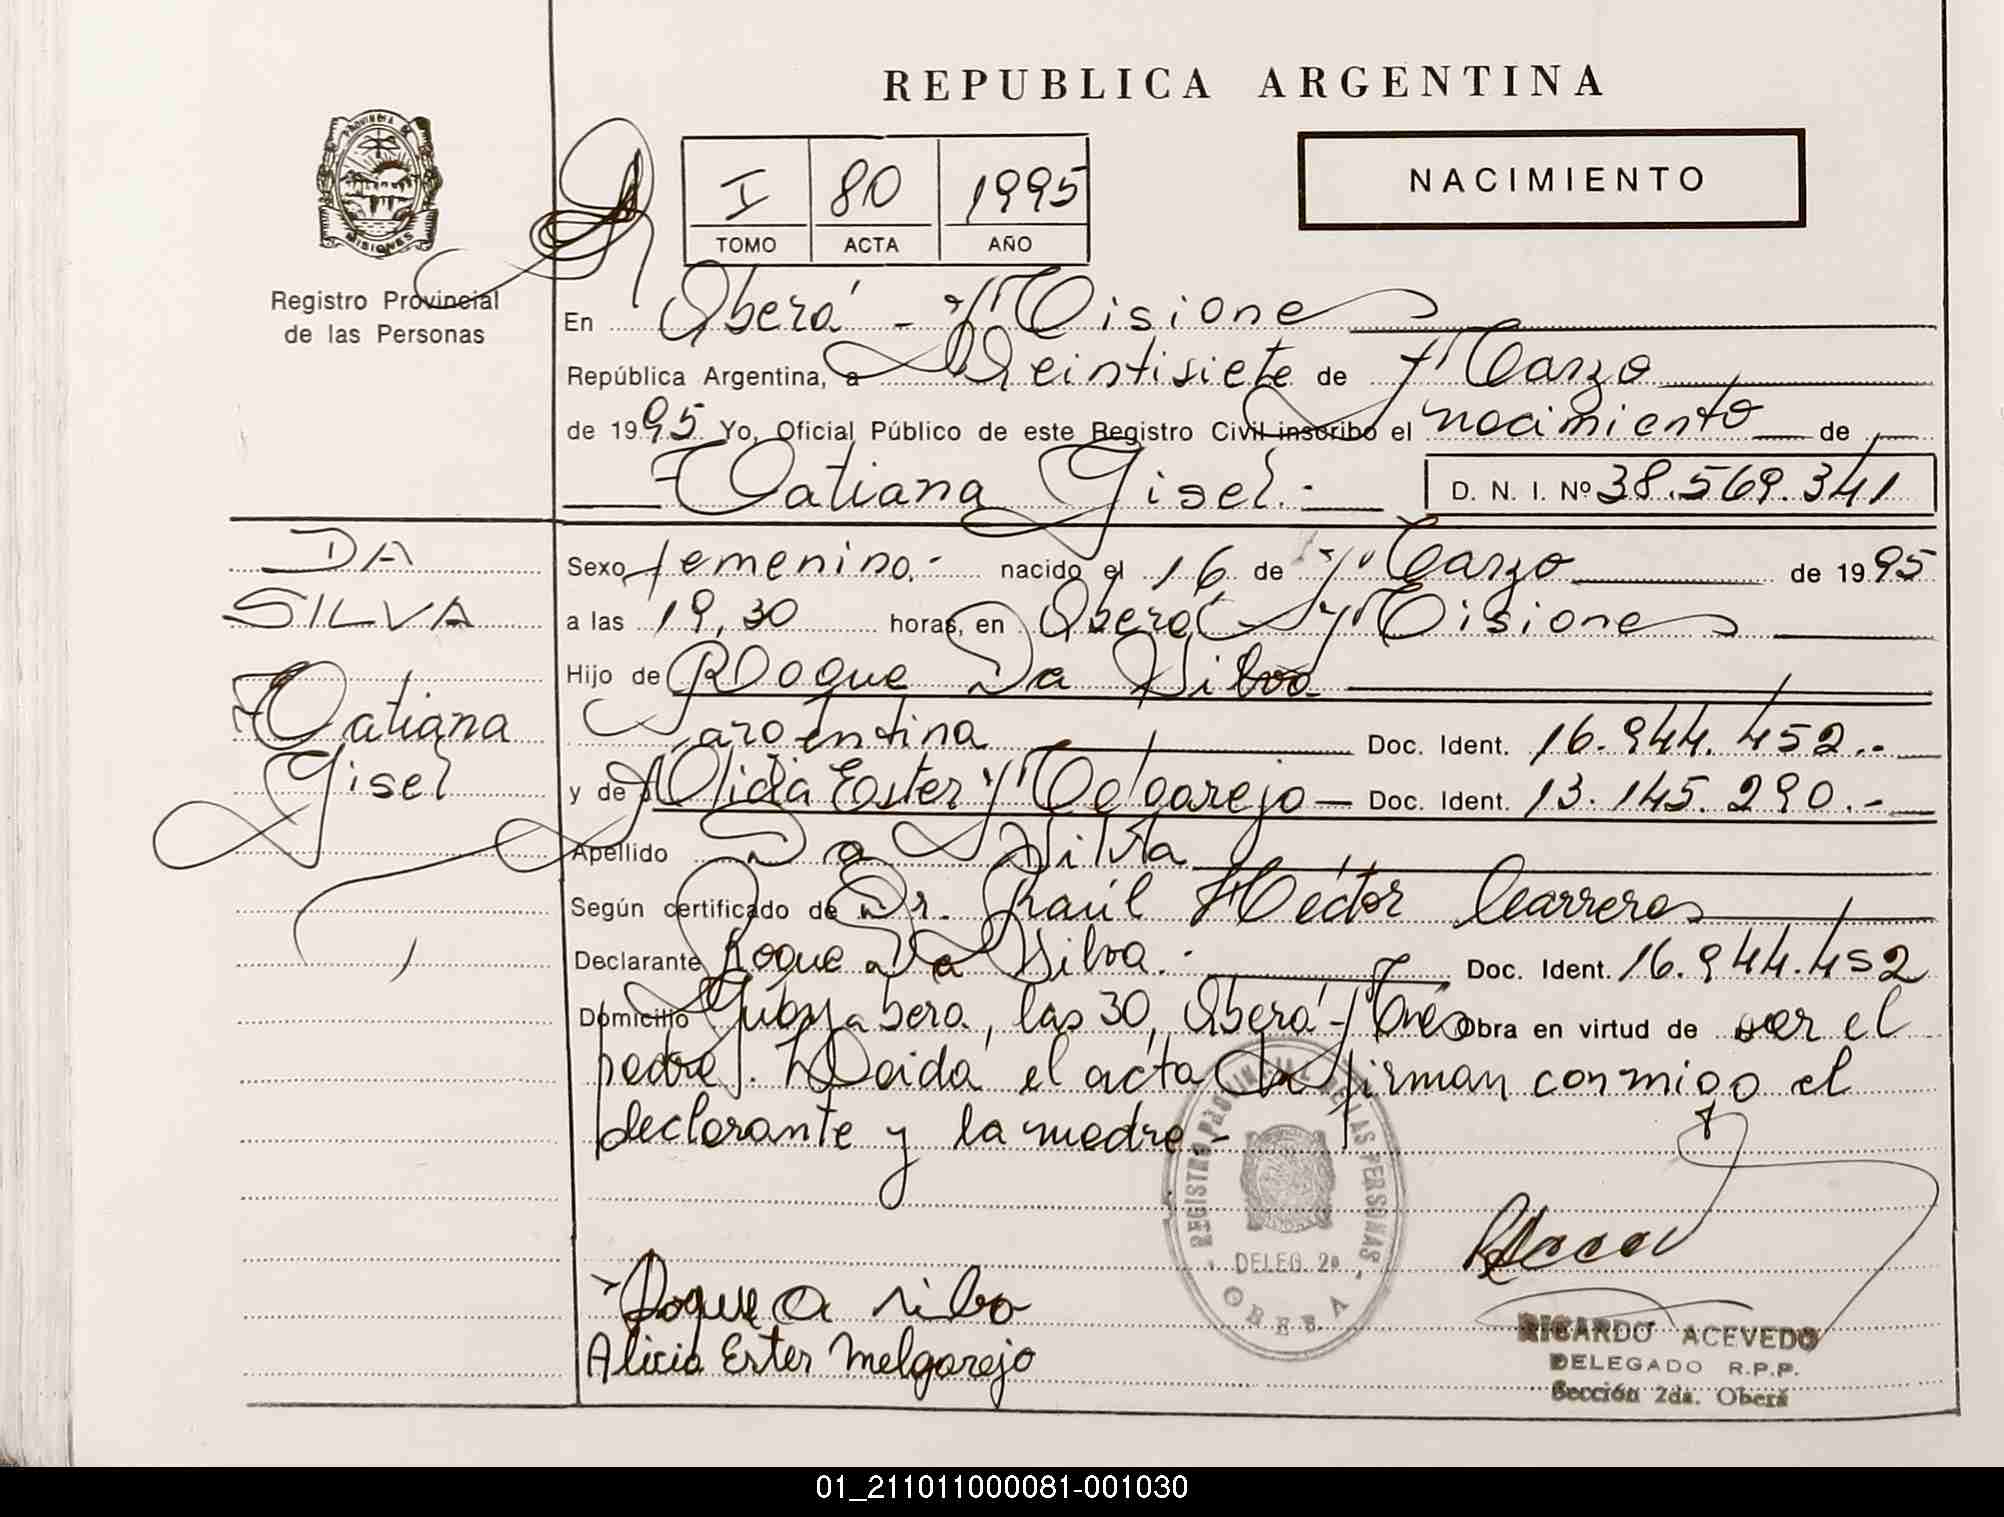 REPUBLICA ARGENTINA
NACIMIENTO
I 80 1995
TOMO ACTA AÑO
PROVINCIA DE
MISIONES
Registro Provincial
de las Personas
En Oberá - Misiones
República Argentina, a Veintisiete de Marzo
de 1995 Yo, Oficial Público de este Registro Civil inscribo el nacimiento de
Tatiana Gisel.- D. N. I. Nº 38.569.341
DA
SILVA
Tatiana
Gisel
Sexo femenino.- nacido el 16 de Marzo de 1995
a las 19,30 horas, en Oberá Misiones
Hijo de Roque Da Silva
argentina Doc. Ident. 16.944.452.-
y de Alicia Ester Melgarejo Doc. Ident. 13.145.290.-
Apellido Da Silva
Según certificado de Dr. Raúl Héctor Carreras
Declarante Roque Da Silva.- Doc. Ident. 16.944.452
Domicilio las 30, Oberá - Mnes Obra en virtud de ser el
padre. Leída el acta la firman conmigo el
declarante y la madre -
REGISTRO PROVINCIAL DE LAS PERSONAS
DELEG. 2ª
OBERA
Roque Da silva
Alicia Ester Melgarejo
RICARDO ACEVEDO
DELEGADO R.P.P.
Sección 2da. Oberá
01_211011000081-001030